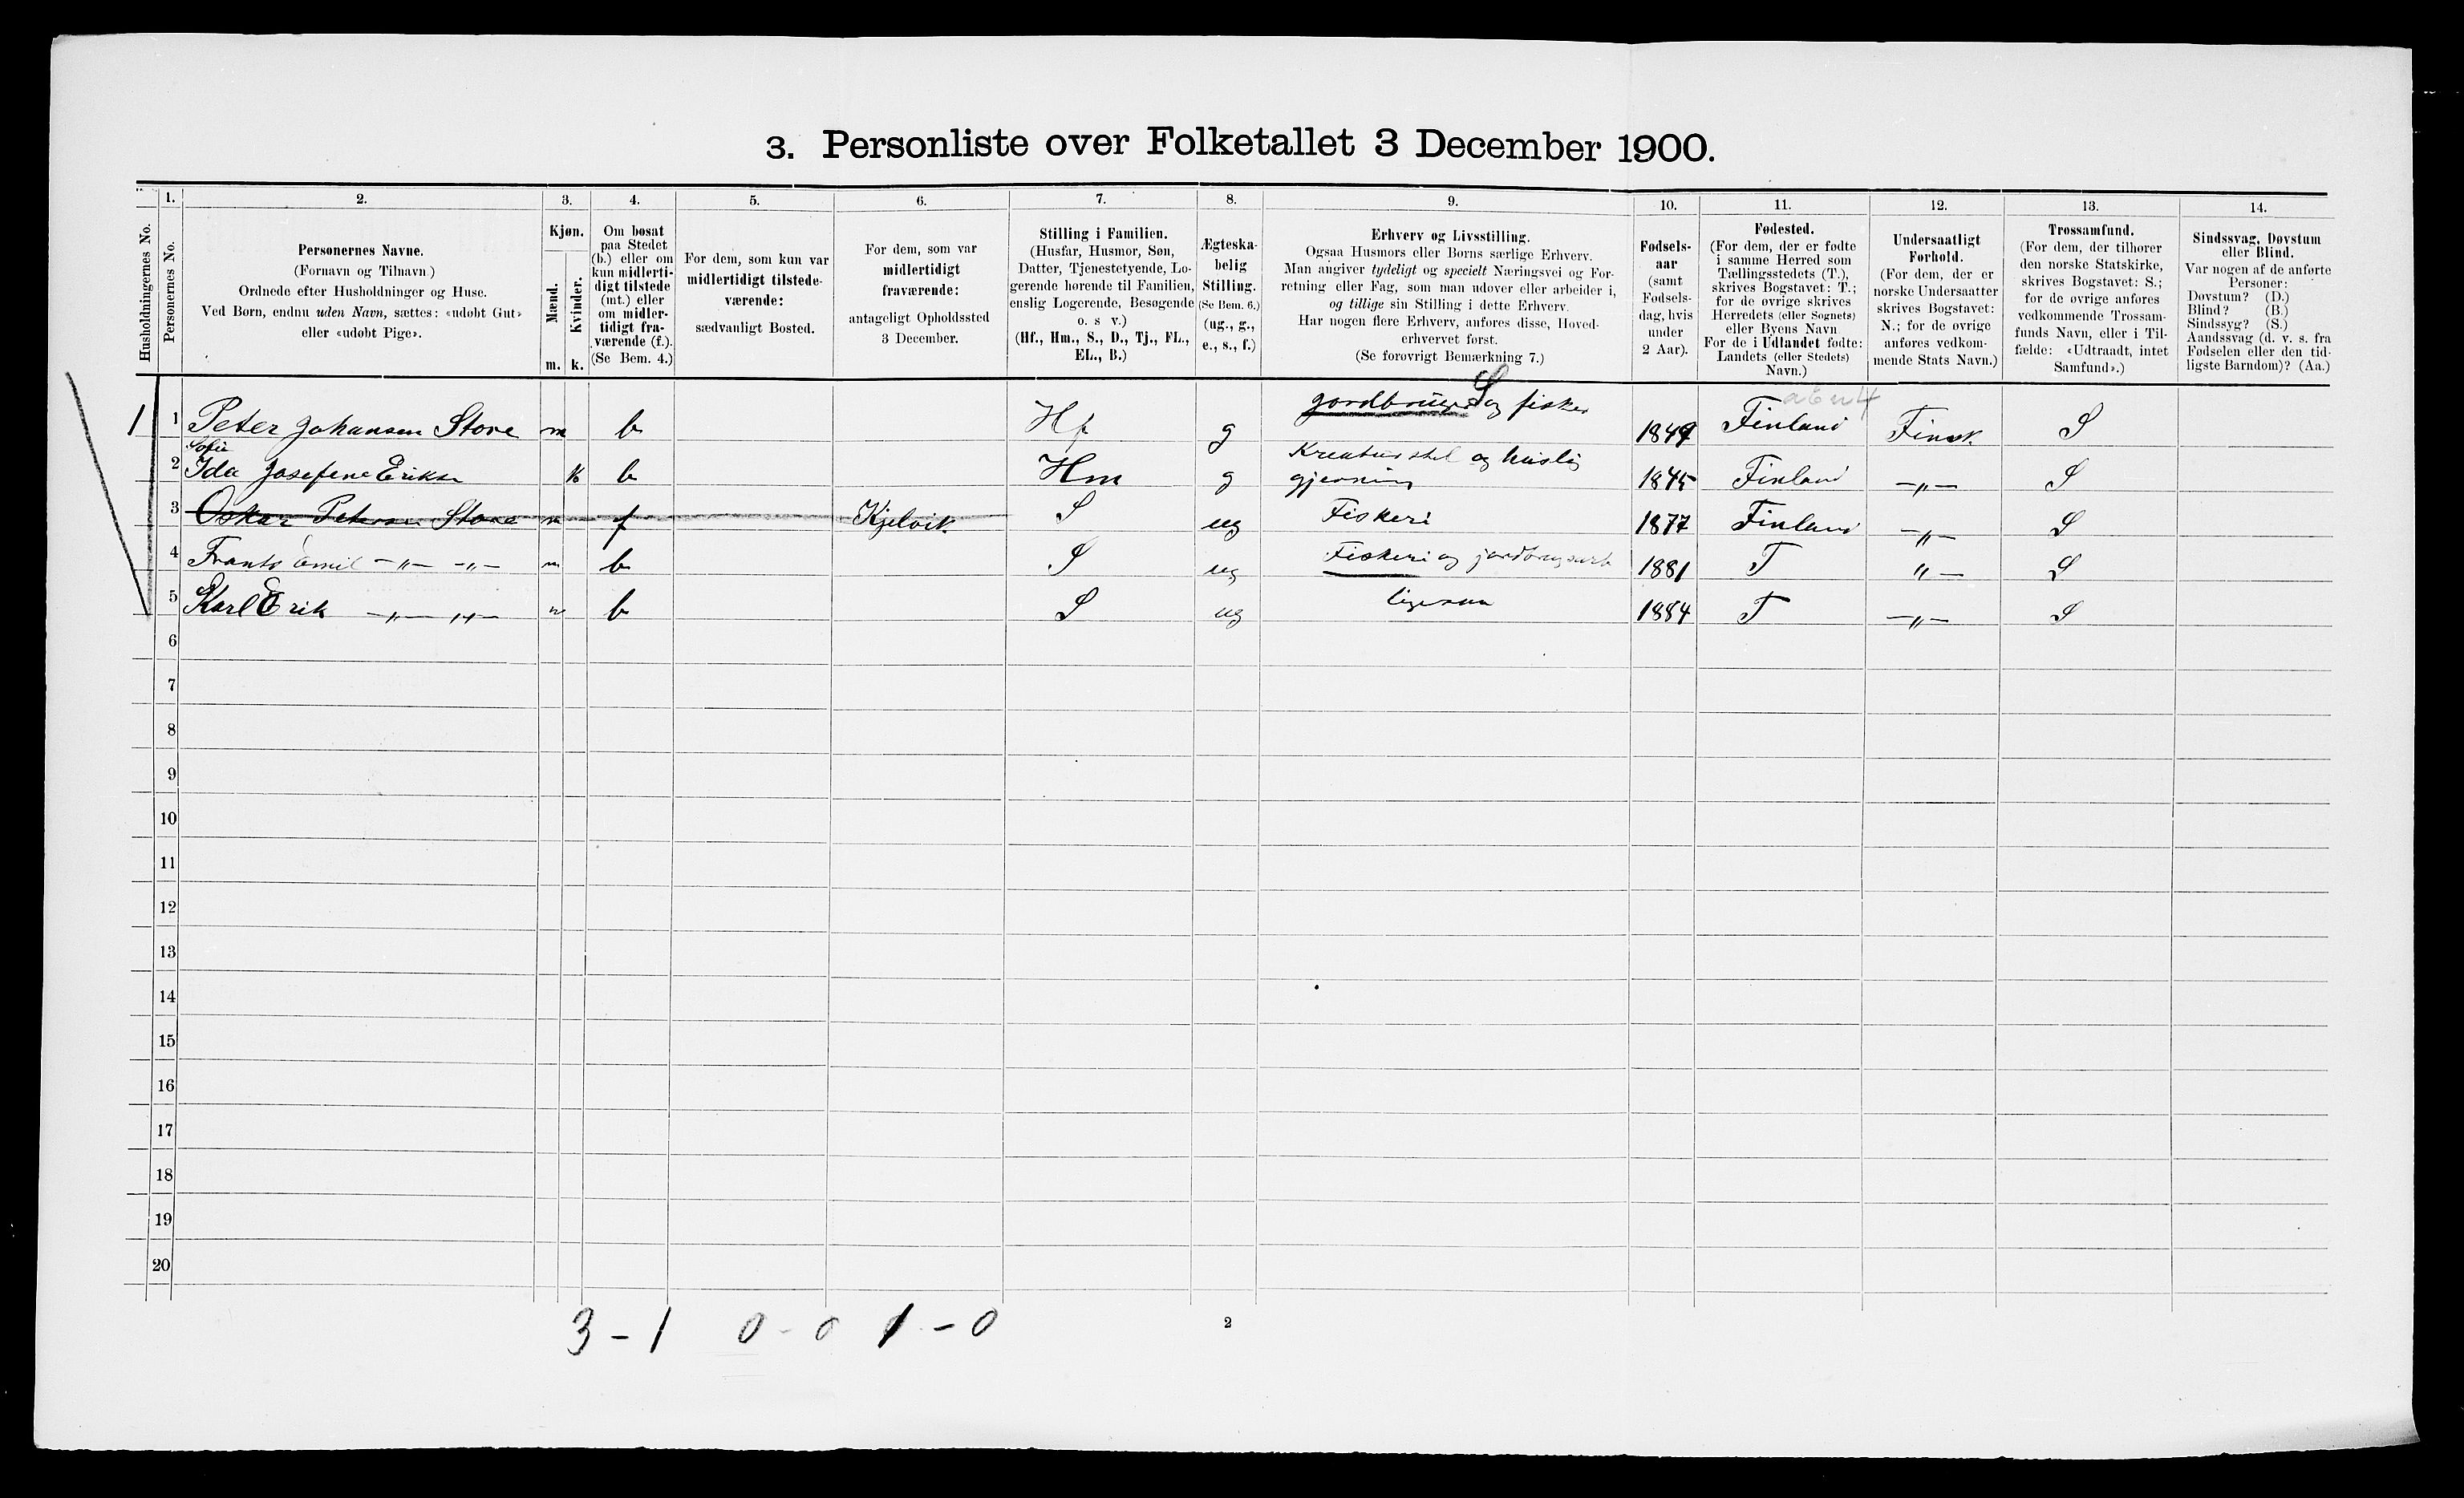 3. Personliste over Folketallet 3 December 1900.
Husholdningernes No.
1.
Personernes No.
2.
Personernes Navne.
(Fornavn og Tilnavn)
Ordnede efter Husholdninger og Huse.
Ved Børn, endnu uden Navn, sættes: «udøbt Gut»
eller «udøbt Pige».
3.
Kjøn.
Mænd.
Kvinder.
m. k.
4.
Om bosat
paa Stedet
(b.) eller om
kun midlerti-
digt tilstede
(mt.) eller
om midler-
tidigt fra-
værende (f.).
(Se Bem. 4.)
5.
For dem, som kun var
midlertidigt tilstede-
værende:
sædvanligt Bosted.
6.
For dem, som var
midlertidigt
fraværende:
antageligt Opholdssted
3 December.
7.
Stilling i Familien.
(Husfar, Husmor, Søn,
Datter, Tjenestetyende, Lo-
gerende hørende til Familien,
enslig Logerende, Besøgende
o. s v.)
(Hf., Hm., S., D., Tj., FL.,
EL., B.)
8.
Ægteska-
belig
Stilling.
(Se Bem. 6.)
(ug., g.,
e., s., f.)
9.
Erhverv og Livsstilling.
Ogsaa Husmors eller Børns særlige Erhverv.
Man angiver tydeligt og specielt Næringsvei og For-
retning eller Fag, som man udøver eller arbeider i,
og tillige sin Stilling i dette Erhverv.
Har nogen flere Erhverv, anføres disse, Hoved-
erhvervet først.
(Se forøvrigt Bemærkning 7.)
10.
Fødsels-
aar
(samt
Fødsels-
dag, hvis
under
2 Aar).
11.
Fødested.
(For dem, der er fødte
i samme Herred som
Tællingsstedets (T.),
skrives Bogstavet: T.;
for de øvrige skrives
Herredets (eller Sognets)
eller Byens Navn
For de i Udlandet fødte:
Landets (eller Stedets)
Navn.)
12.
Undersaatligt
Forhold.
(For dem, der er
norske Undersaatter
skrives Bogstavet:
N.; for de øvrige
anføres vedkom-
mende Stats Navn.)
13.
Trossamfund.
(For dem, der tilhører
den norske Statskirke,
skrives Bogstavet: S.;
for de øvrige anføres
vedkommende Trossam-
funds Navn, eller i Til-
fælde: «Udtraadt, intet
Samfund».)
14.
Sindssvag, Døvstum
eller Blind.
Var nogen af de anførte
Personer:
Døvstum? (D.)
Blind? (B.)
Sindssyg? (S.)
Aandssvag (d. v. s. fra
Fødselen eller den tid-
ligste Barndom)? (Aa.)
1 1 Peter Johansen Store m b Hf g S og fisker 1849 Finland Finsk S
Sofie
2 Ida Josefene Eriksn k b Hm g Kreaturstel og huslig gjerning 1845 Finland —„— S
3 Oskar Petersen Store m f Kjelvik S ug Fiskeri 1877 Finland —„— S
4 Frants Emil —„— —„— m b S ug Fiskeri og 1881 T „— S
5 Karl Erik —„— „— m b S ug ligesaa 1884 T —„— S
6
7
8
9
10
11
12
13
14
15
16
17
18
19
20
3 – 1 0 - 0 1 – 0
2